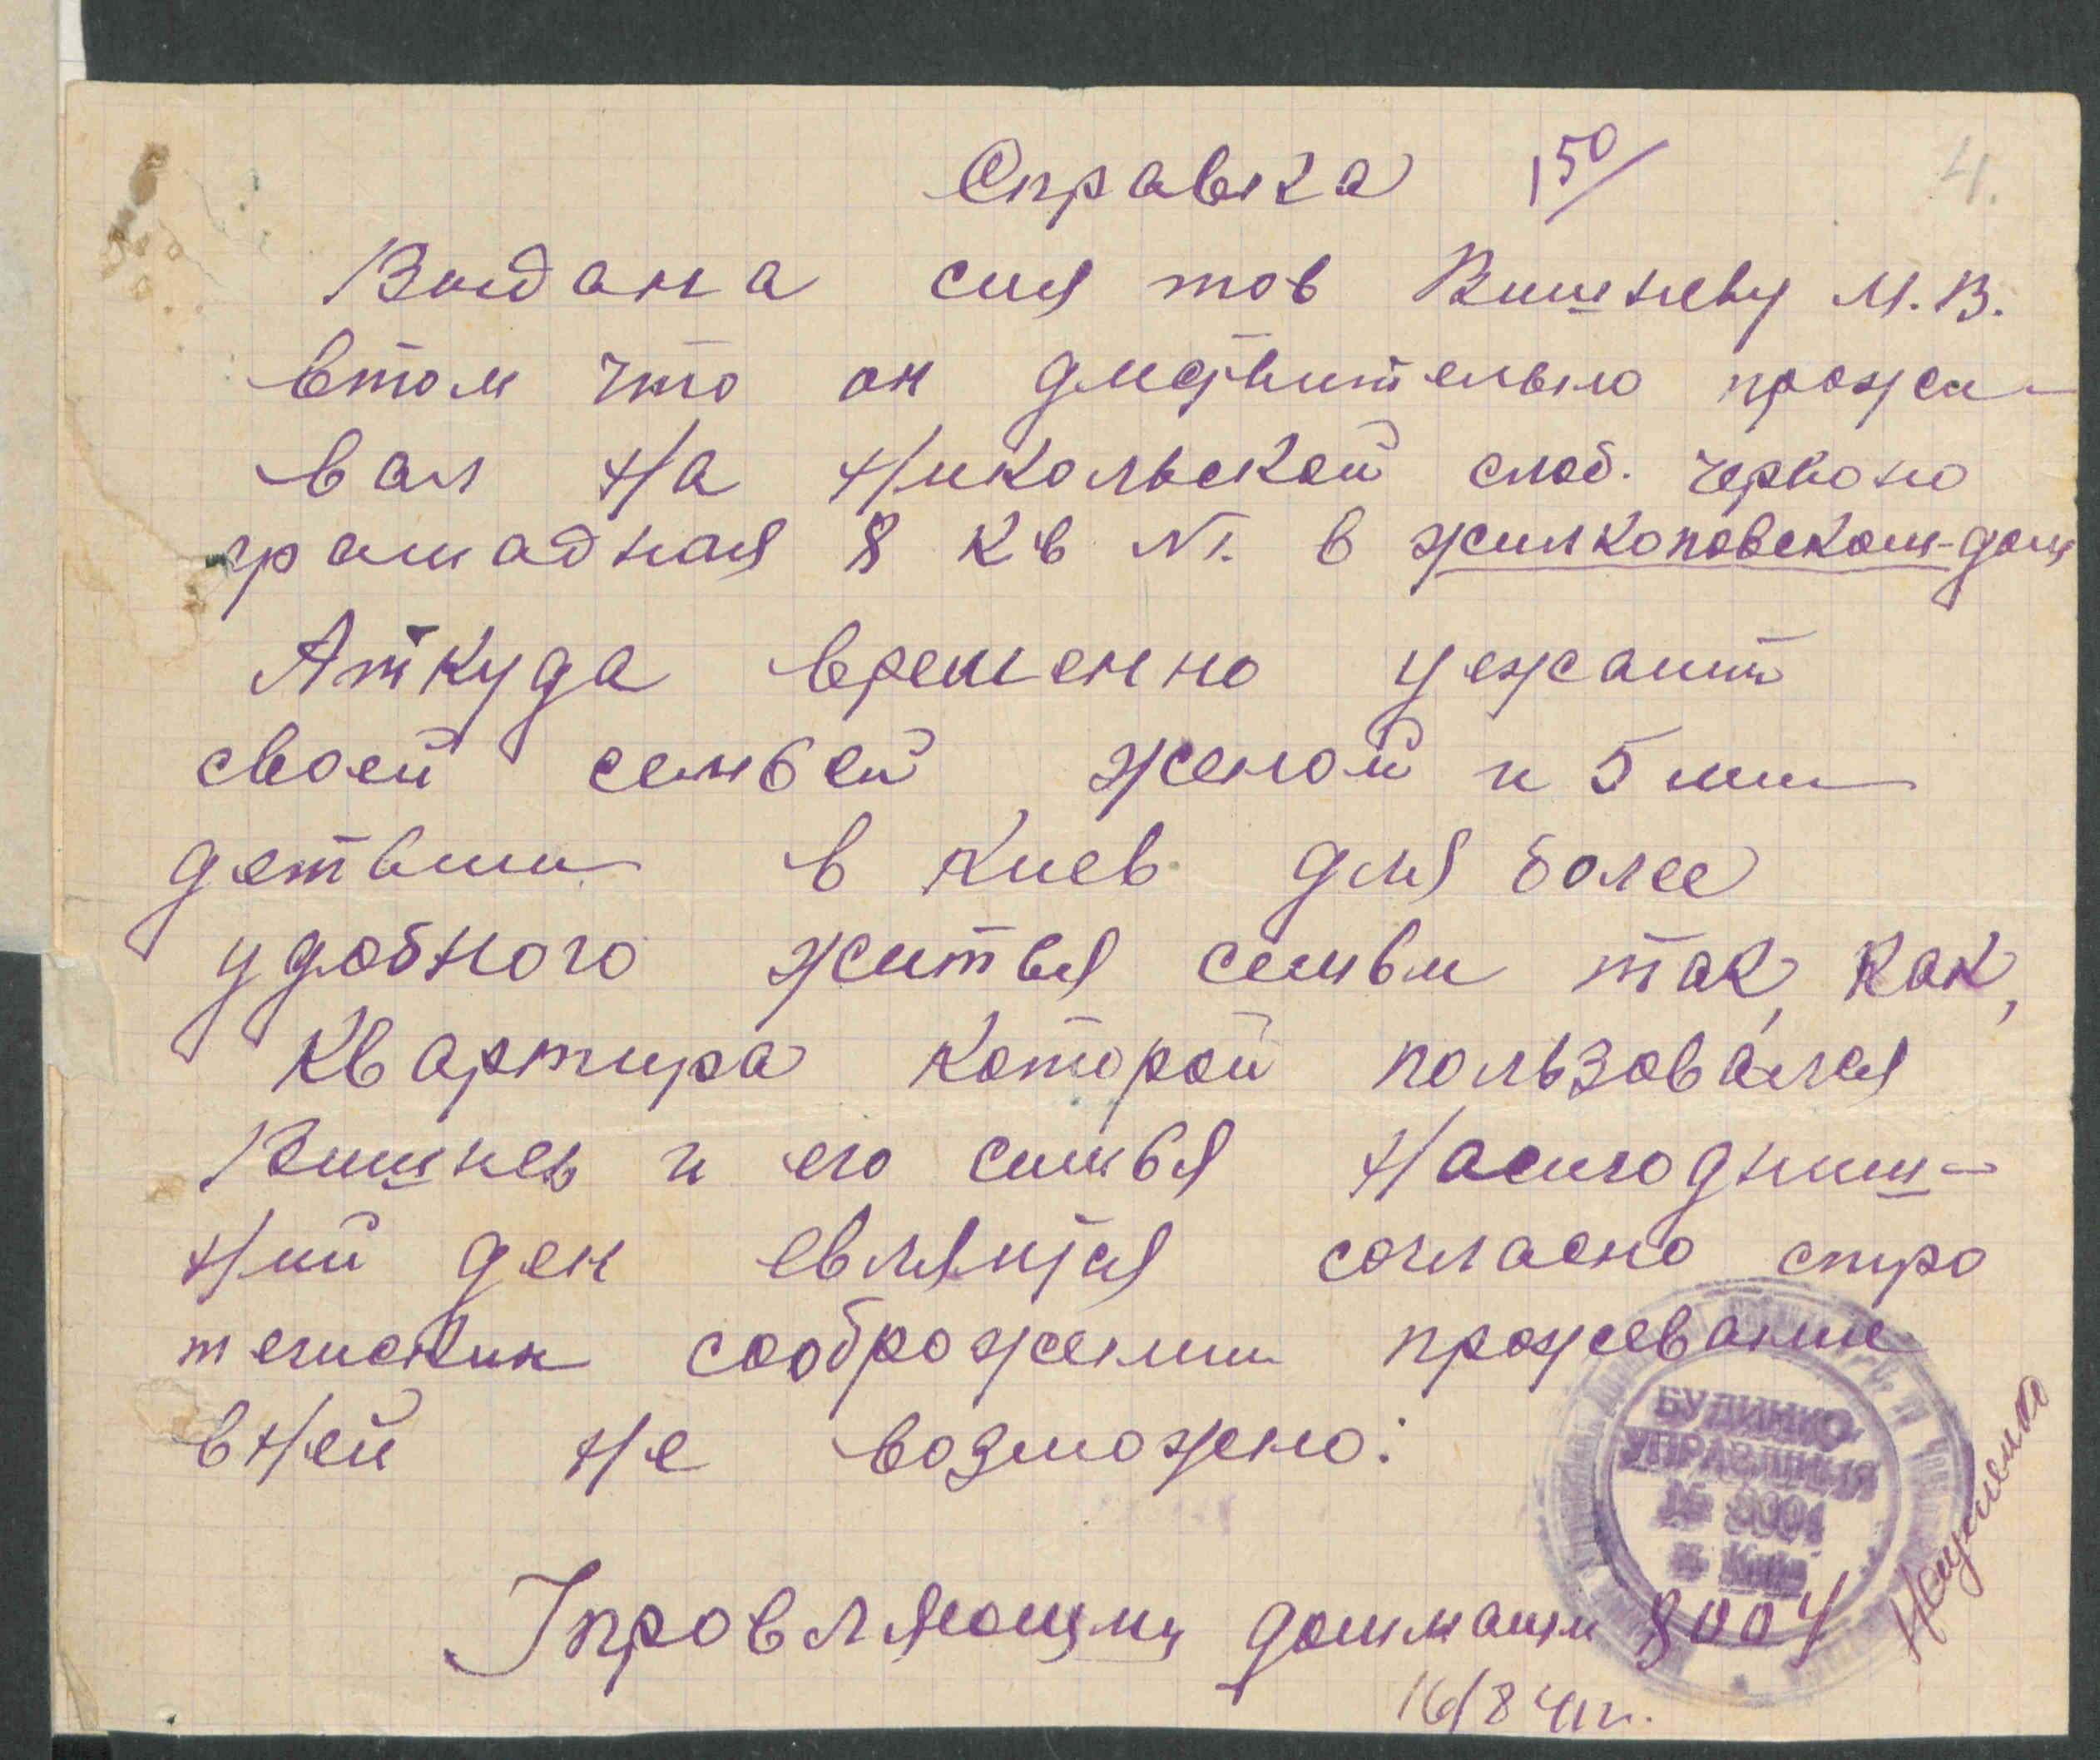 Справка 150/
4.
Выдана сия тов Вишневу М.В.
втом что он дисствительно прожи-
вал на Никольской слоб. Червоно
грамадная 8 кв №1. в жилкоповском-дому
Аткуда временно уежаит
своей семьей женой и 5 ми
детьми в Киев для более
удобного житья семьи так, как,
квартира которой пользовался
Вишнев и его симья насигодниш-
ний ден евляитса согласно стро
тегиских сооброжении прожевание
вней не возможно:
БУДИНКО-
УПРАВЛІННЯ
м. Київ
Упровляющий домами 8004
16/8 41 г.